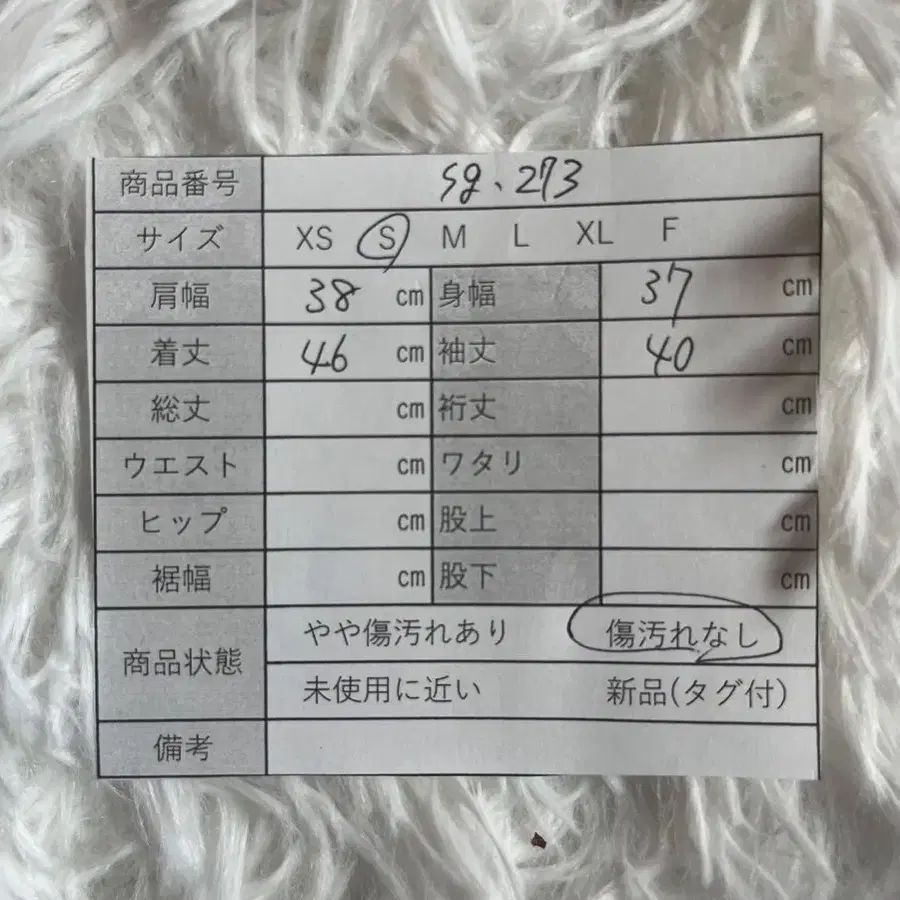 商品番号 sg、273
サイズ XS S M L XL F
肩幅 38 cm 身幅 37 cm
着丈 46 cm 袖丈 40 cm
総丈 cm 裄丈 cm
ウエスト cm ワタリ cm
ヒップ cm 股上 cm
裾幅 cm 股下 cm
商品状態 やや傷汚れあり 傷汚れなし
未使用に近い 新品(タグ付)
備考